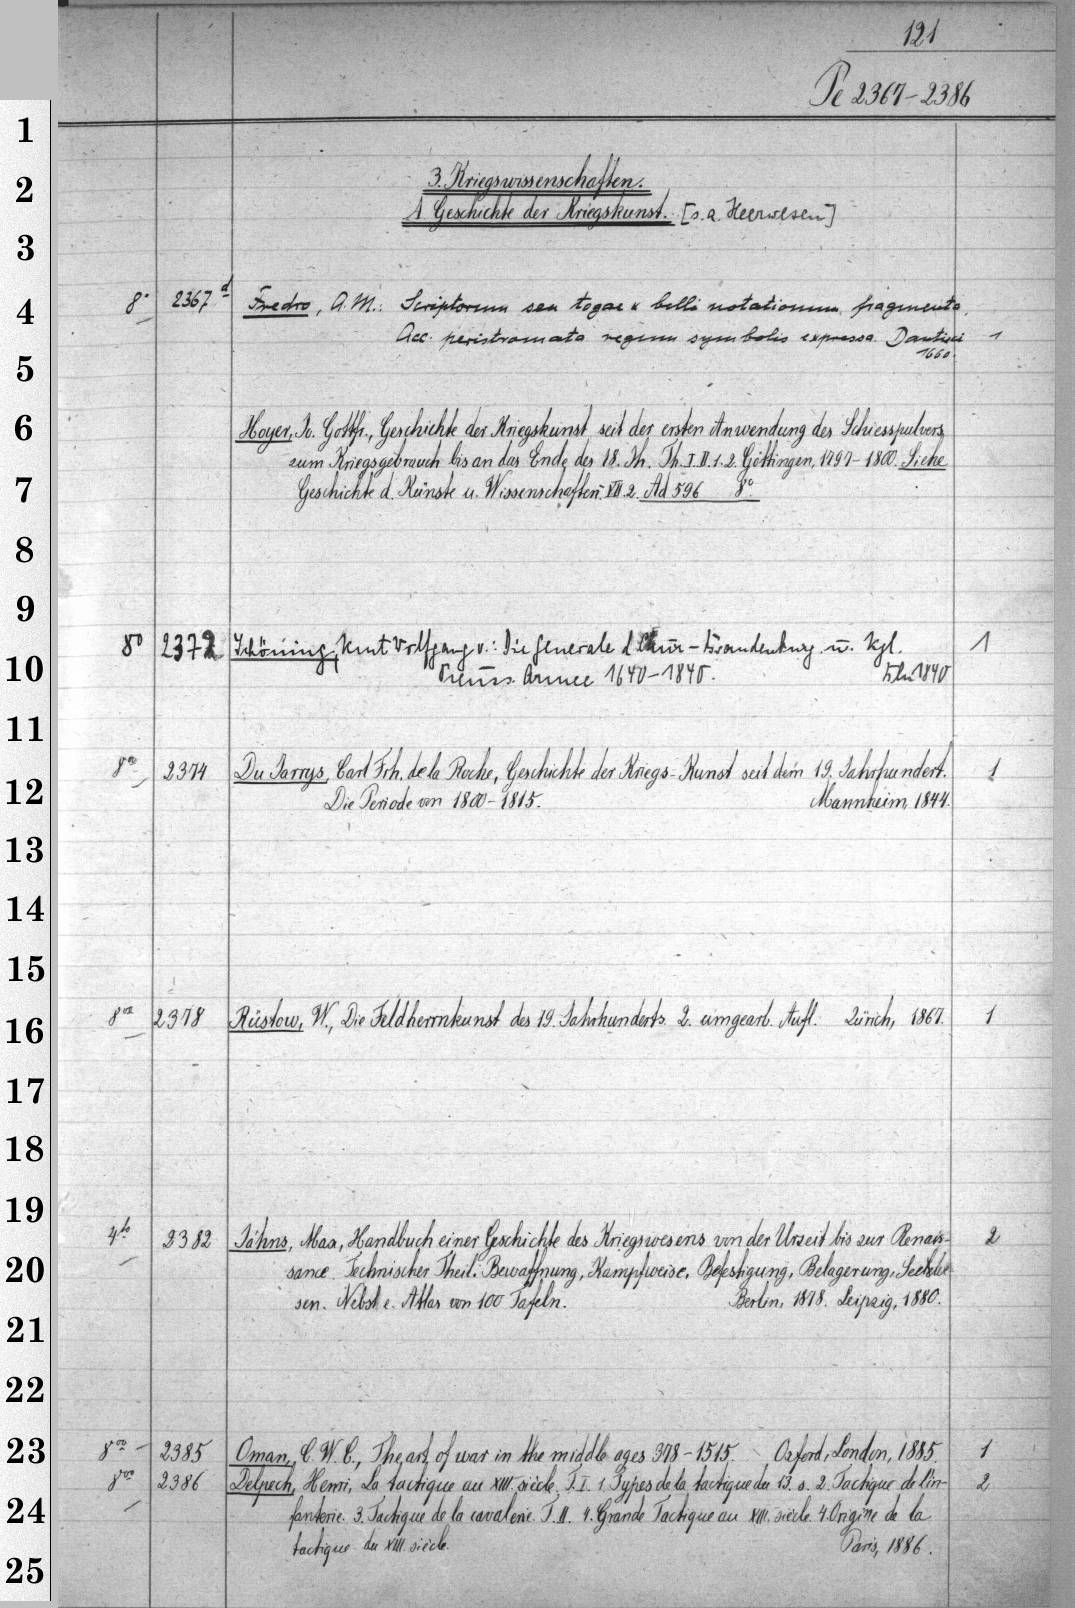 121
Pe 2367-2386
3. Kriegswissenschaften.
1 Geschichte der Kriegskunst. [s. a. Heerwesen]
8° 2367 d Fredro, A. M.: Scriptorum seu togae & belli notationum fragmenta.
Acc. peristromata regum symbolis expressa. Dantisci 1
1660.
Hoyer, Jo. Gottfr., Geschichte der Kriegskunst seit der ersten Anwendung des Schiesspulvers
zum Kriegsgebrauch bis an das Ende des 18. Jh. Th. I. II. 1. 2. Göttingen, 1797-1800. Siehe
Geschichte d. Künste u. Wissenschaften VII 2. Ad 596 8°
8° 2372 Schöning, Kurt Wolfgang v.: Die Generale d Chur-Brandenburg. u. Kgl. 1
Preuss. Armee 1640-1840. Bln 1840
8vo 2374 Du Jarrys, Carl Frh. de la Roche, Geschichte der Kriegs-Kunst seit dem 19. Jahrhundert. 1
Die Periode von 1800-1815. Mannheim, 1844.
8vo 2378 Rüstow, W., Die Feldherrnkunst des 19. Jahrhunderts. 2. umgearb. Aufl. Zürich, 1867. 1
4to 2382 Jähns, Max, Handbuch einer Geschichte des Kriegswesens von der Urzeit bis zur Renais- 2
sance. Technischer Theil: Bewaffnung, Kampfweise, Befestigung, Belagerung, Seewe-
sen. Nebst e. Atlas von 100 Tafeln. Berlin, 1878. Leipzig, 1880.
8vo 2385 Oman, C. W. C., The art of war in the middle ages 378-1515. Oxford, London, 1885. 1
8vo 2386 Delpech, Henri, La tactique au XIII. siècle. T. I. 1. Types de la tactique du 13. s. 2. Tactique de l'in- 2
fanterie. 3. Tactique de la cavalerie. T. II. 4. Grande Tactique au XIII. siècle. 4. Origine de la
tactique du XIII. siècle. Paris, 1886.
1
2
3
4
5
6
7
8
9
10
11
12
13
14
15
16
17
18
19
20
21
22
23
24
25